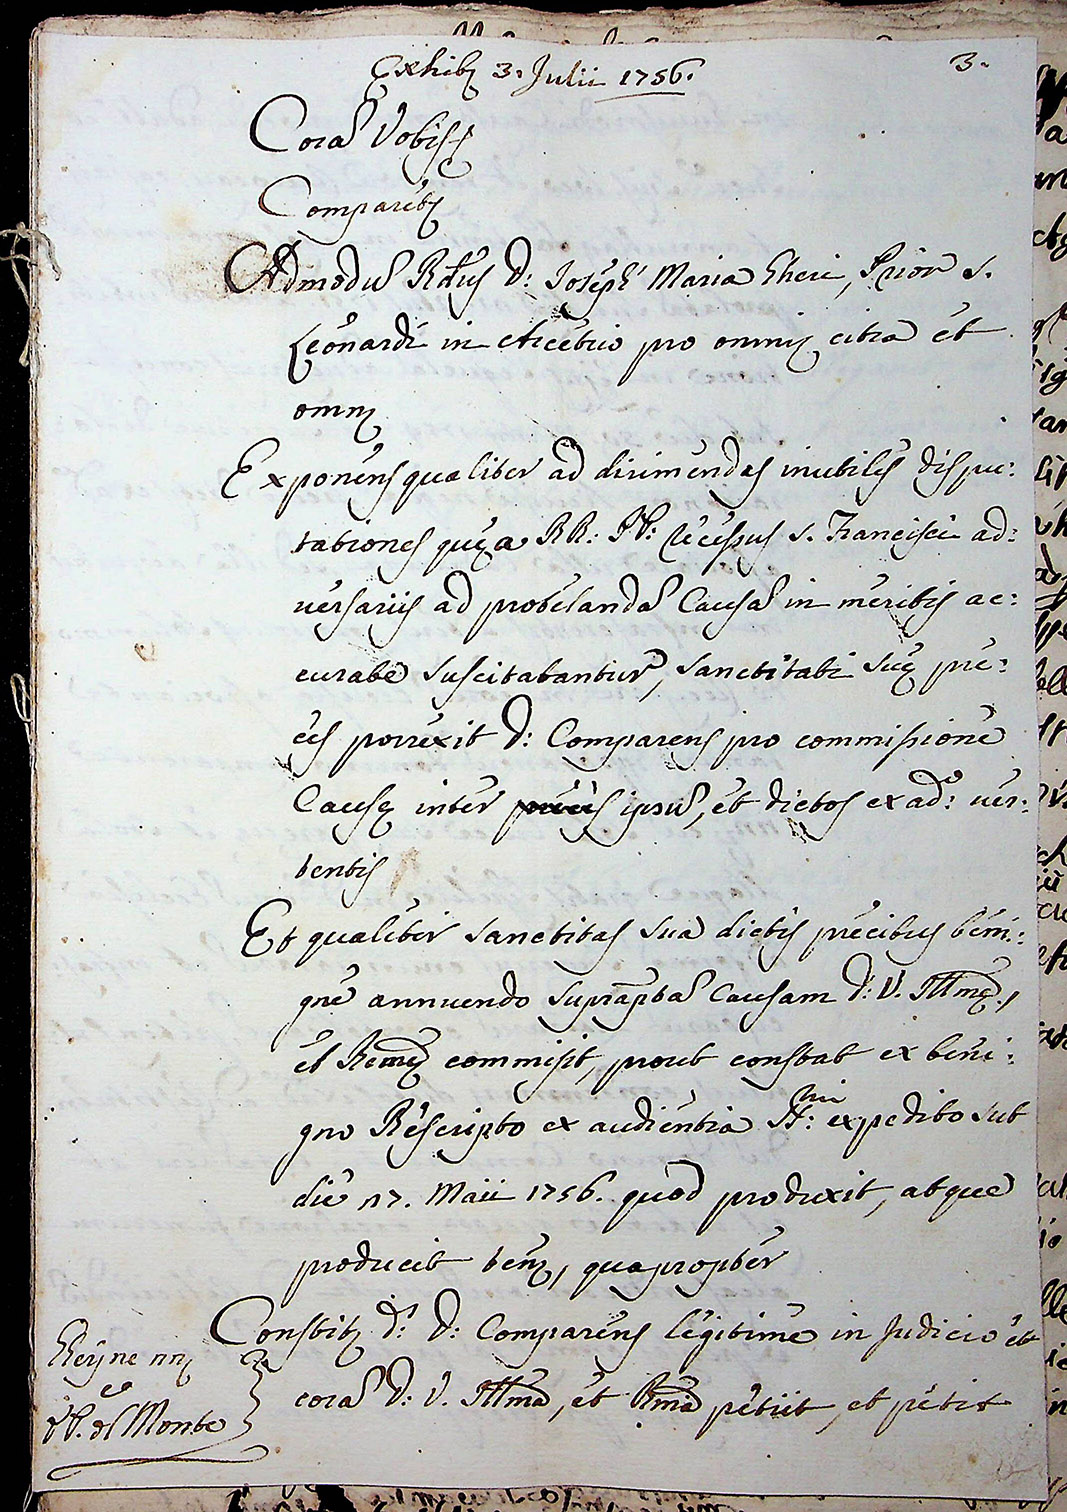 Exhibʒ 3. Julii 1756. 3.
Corã Vobis
Comparētʒ
Admodũ Rđus D: Joseph Maria Eheri, Prior S.
Leonardi in Arcetrio pro omniʒ citra et
omnʒ
Exponens qualiter ad dirimendas inutiles dispu:
tationes quę a RR: PP: recessus S. Francisci ad:
versariis ad protelandã Causã in meritis ac:
curate suscitabantur, Sanctitati Suę pre:
ces porrexit D: Comparens pro commissione
Causę inter ipsũ, et dictos ex ad:º ver:
tentis
Et qualiter Sanctitas Sua dictis precibus beni:
gne annuendo supraptã Causam D: V. Illmę,
et Rēmę commisit, prout constat ex beni:
gno Rescripto ex audientia SS:mi expedito sub
die 17. Maii 1756. quod produxit, atque
producit tenʒ, quapropter
Constitʒ d: D: Comparens legitime in Judicio et
corã D: V. Illmã, et Rmã petiit, et petit
del Monte